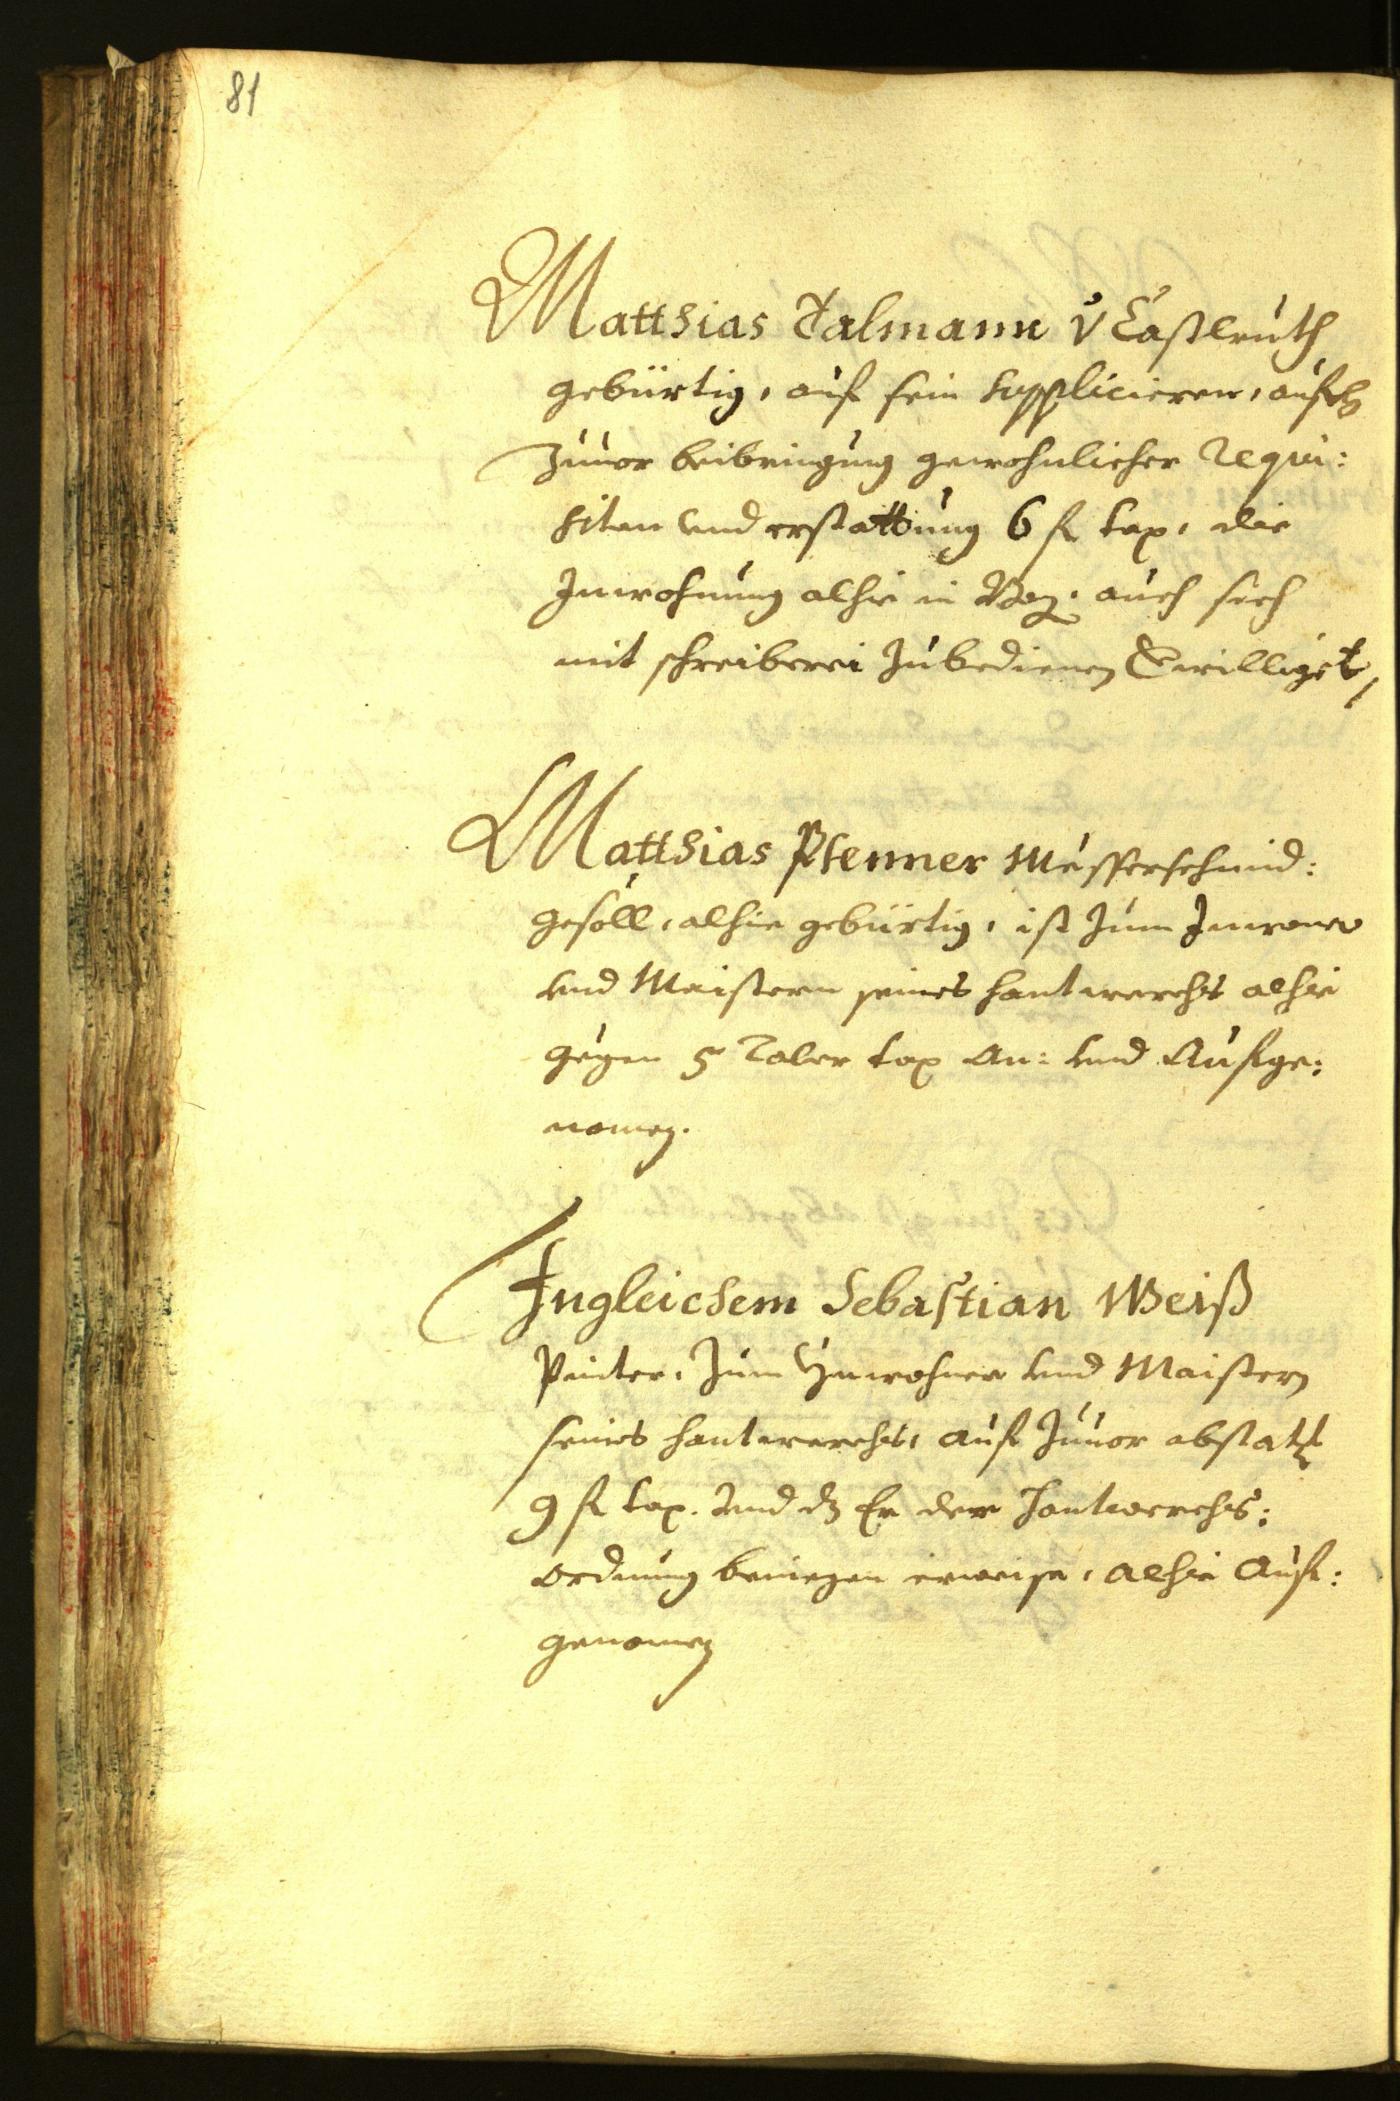 81
Matthias Talmann v Castlruth
gebürtig, auf sein supplicieren, auf
Zuuor beibringung gewohnlicher Requi:
siten vnd erstattung 6 fl tax, die
Inwohnung alhie in Boz. auch sich
mit schreiberei Zubedienen Ewilliget,
Matthias Plenner Messerschmid:
gesöll, alhie gebürtig, ist Zum Inwoner
vnd Maistern seines hantwerchs alhie
gegen 5 Taler tax An: vnd Aufge:
nomen.
Ingleichem Sebastian Weiß
Pinter, Zum Ynwohner vnd Maistern
seines hantwerchs, auf Zuuor abstatt
9 fl tax. Vnd dz Er der Hantwerchs:
ordnung beniegen erweise, alhie Auf:
genomen